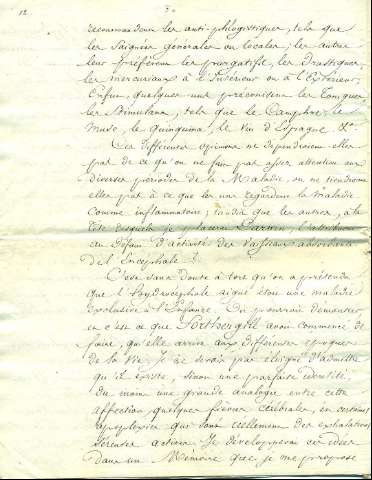 12
recommandent les anti-phlogistiques, tels que
les Saignées générales ou locales; les autres
leur préfèrent les purgatifs, les Drastiques,
les mercuriaux à l'Intérieur ou à l'Extérieur;
Enfin, quelques uns préconisent les Toniques,
les Stimulans, tels que le Camphre, le
Musc, le quinquina, le Vin d'Espagne &c.
Ces différentes opinions ne dépendroient elles
pas de ce qu'on ne fait pas assez attention aux
diverses périodes de la Maladie, ou ne tiendroient
elles pas à ce que les uns regardent la maladie
comme inflammatoire; tandis que les autres, à la
tête desquels je placerai Darwin, l'attribuent
au Défaut d'activité des Vaisseaux absorbans
de l'Encephale?
C'est sans doute à tort qu'on a prétendu
que l'hydrocéphale aiguë étoit une maladie
Exclusive à l'Enfance. On pourroit démontrer,
et c'est ce que Fothergill avoit commencé de
faire, qu'elle arrive aux différentes époques
de la vie. Je ne serois pas éloigné d'admettre
qu'il Existe, sinon une parfaite identité,
du moins une grande analogie entre cette
affection quelques fièvres cérébrales, et certaines
apoplexies qui sont réellement des exhalations
séreuses actives. Je développerai ces idées
dans un Mémoire que je me propose